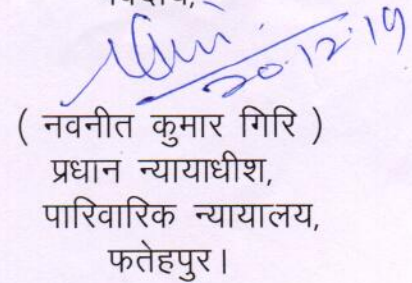 20.12.19
( नवनीत कुमार गिरि )
प्रधान न्यायाधीश,
पारिवारिक न्यायालय,
फतेहपुर।